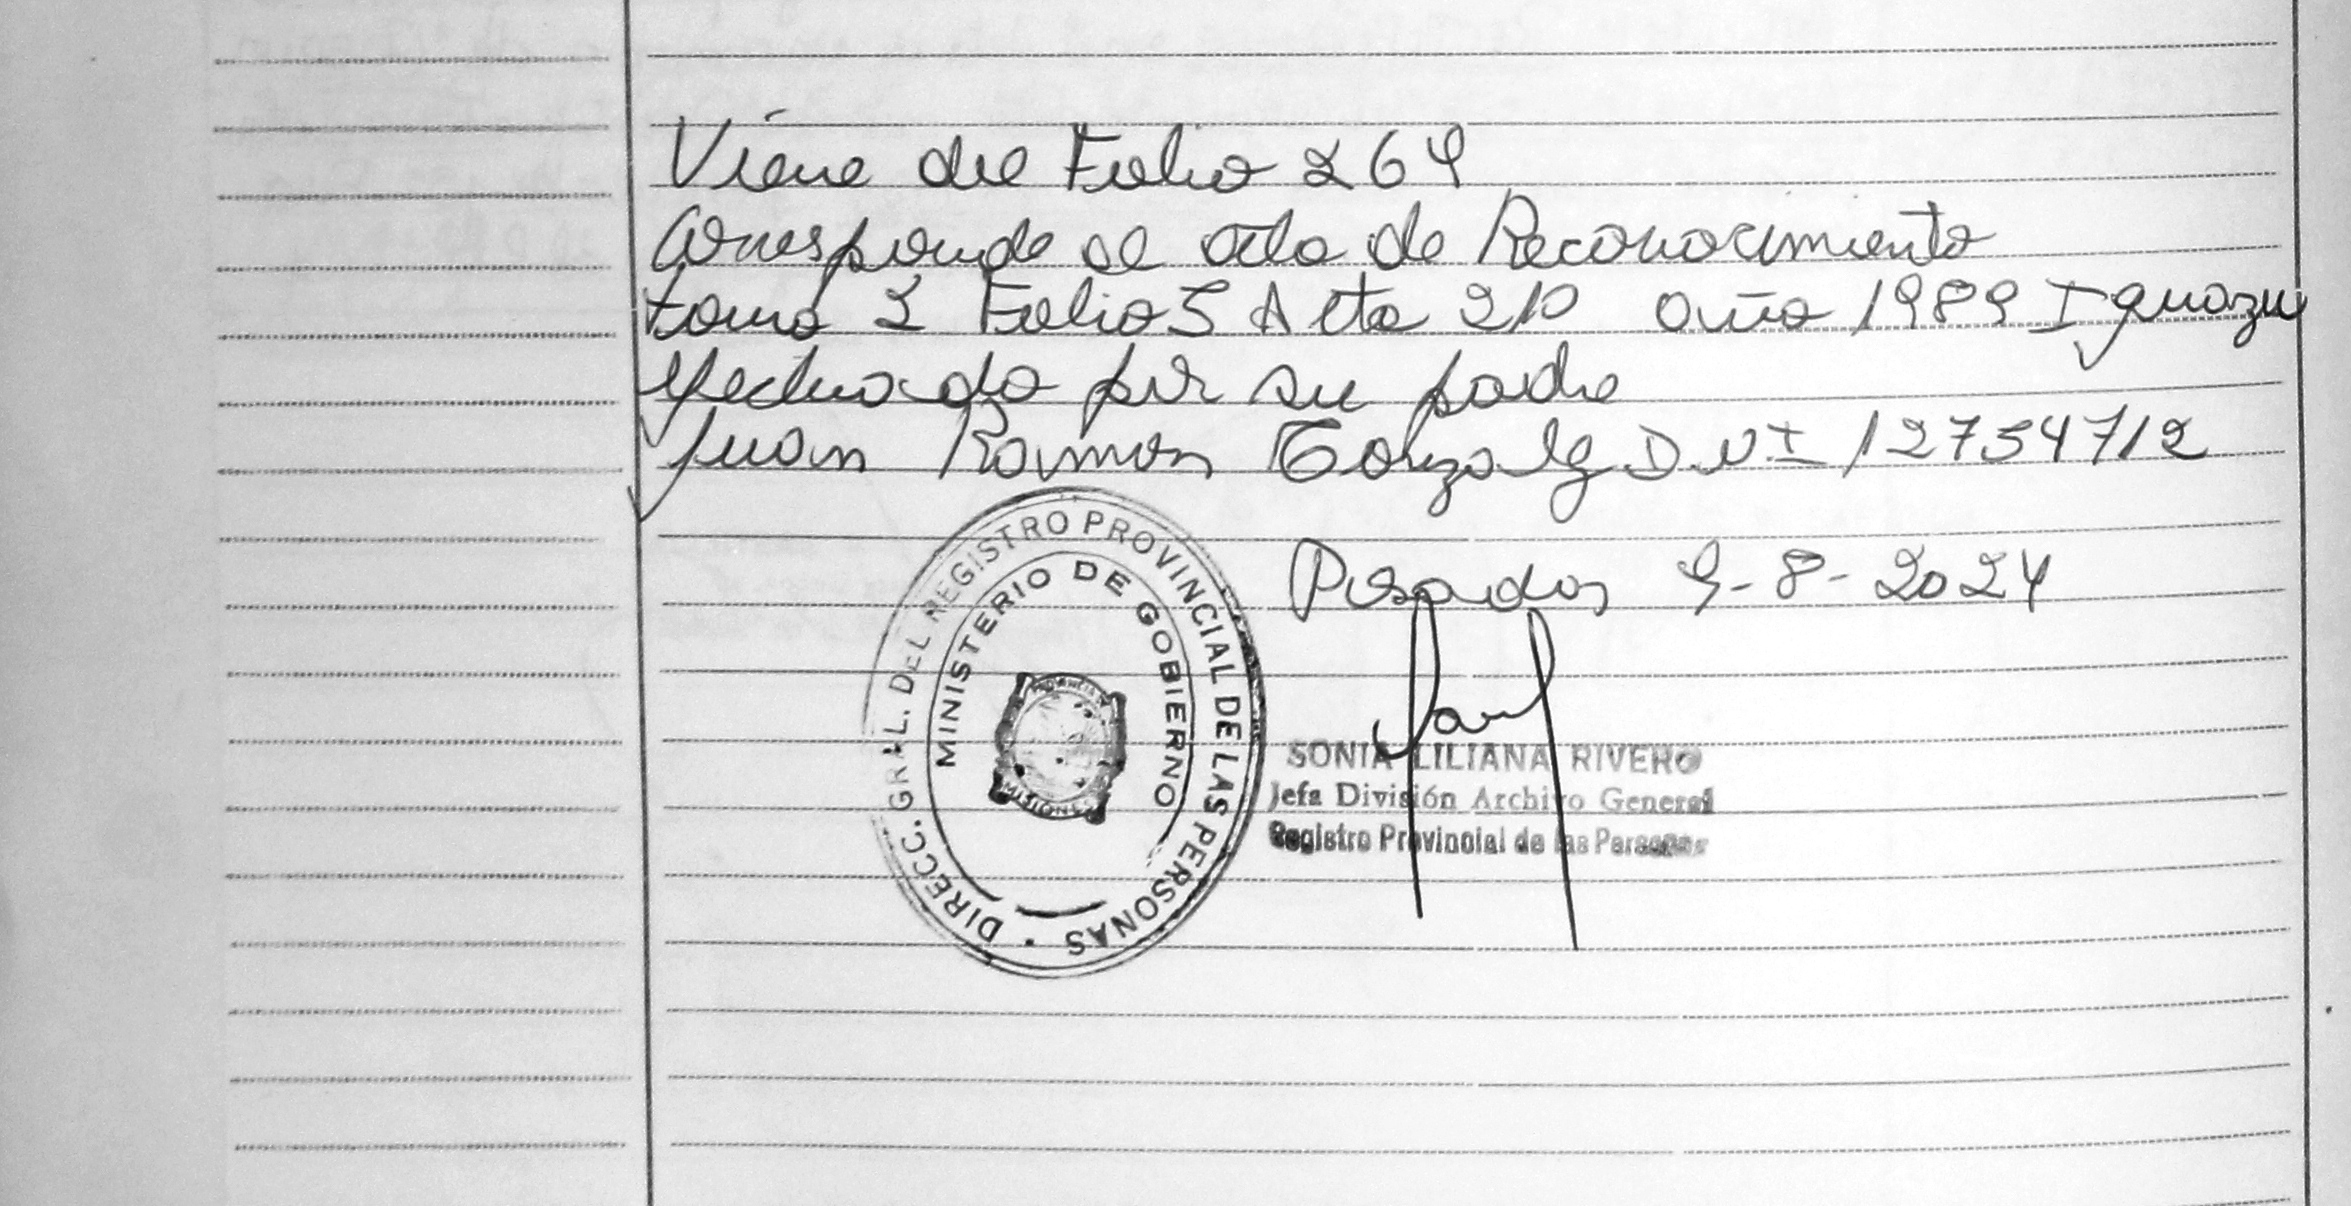 Viene del Folio 264
Corresponde al Acta de Reconocimiento
tomo 2 Folio 5 Acta 210 año 1989 Iguazu
efectuado por su padre
Juan Ramon Gonzalez D.N.I 12754712
Posadas 9-8-2024
DIRECC. GRAL. DEL REGISTRO PROVINCIAL DE LAS PERSONAS
MINISTERIO DE GOBIERNO
PROVINCIA
MISIONES
SONIA LILIANA RIVERO
Jefa División Archivo General
Registro Provincial de las Personas